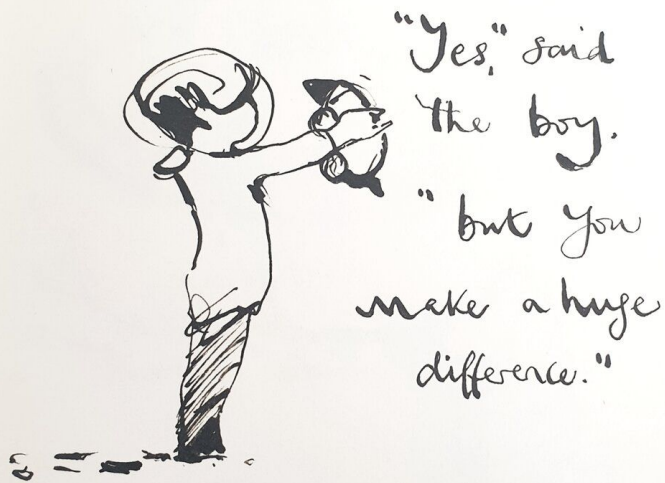 "Yes," said
the boy.
"but you
make a huge
difference."